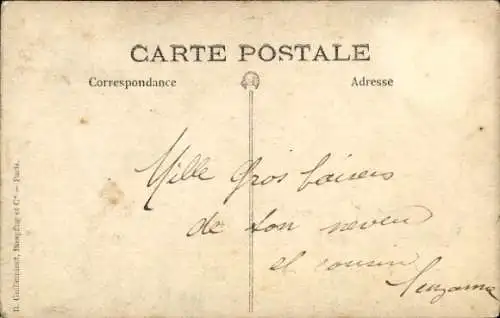 CARTE POSTALE
Correspondance
Adresse
Mille Gros baisers
de ton neveu
et cousin
Suzanne
R. Guilleminot, Bœspflug et Cie — Paris.